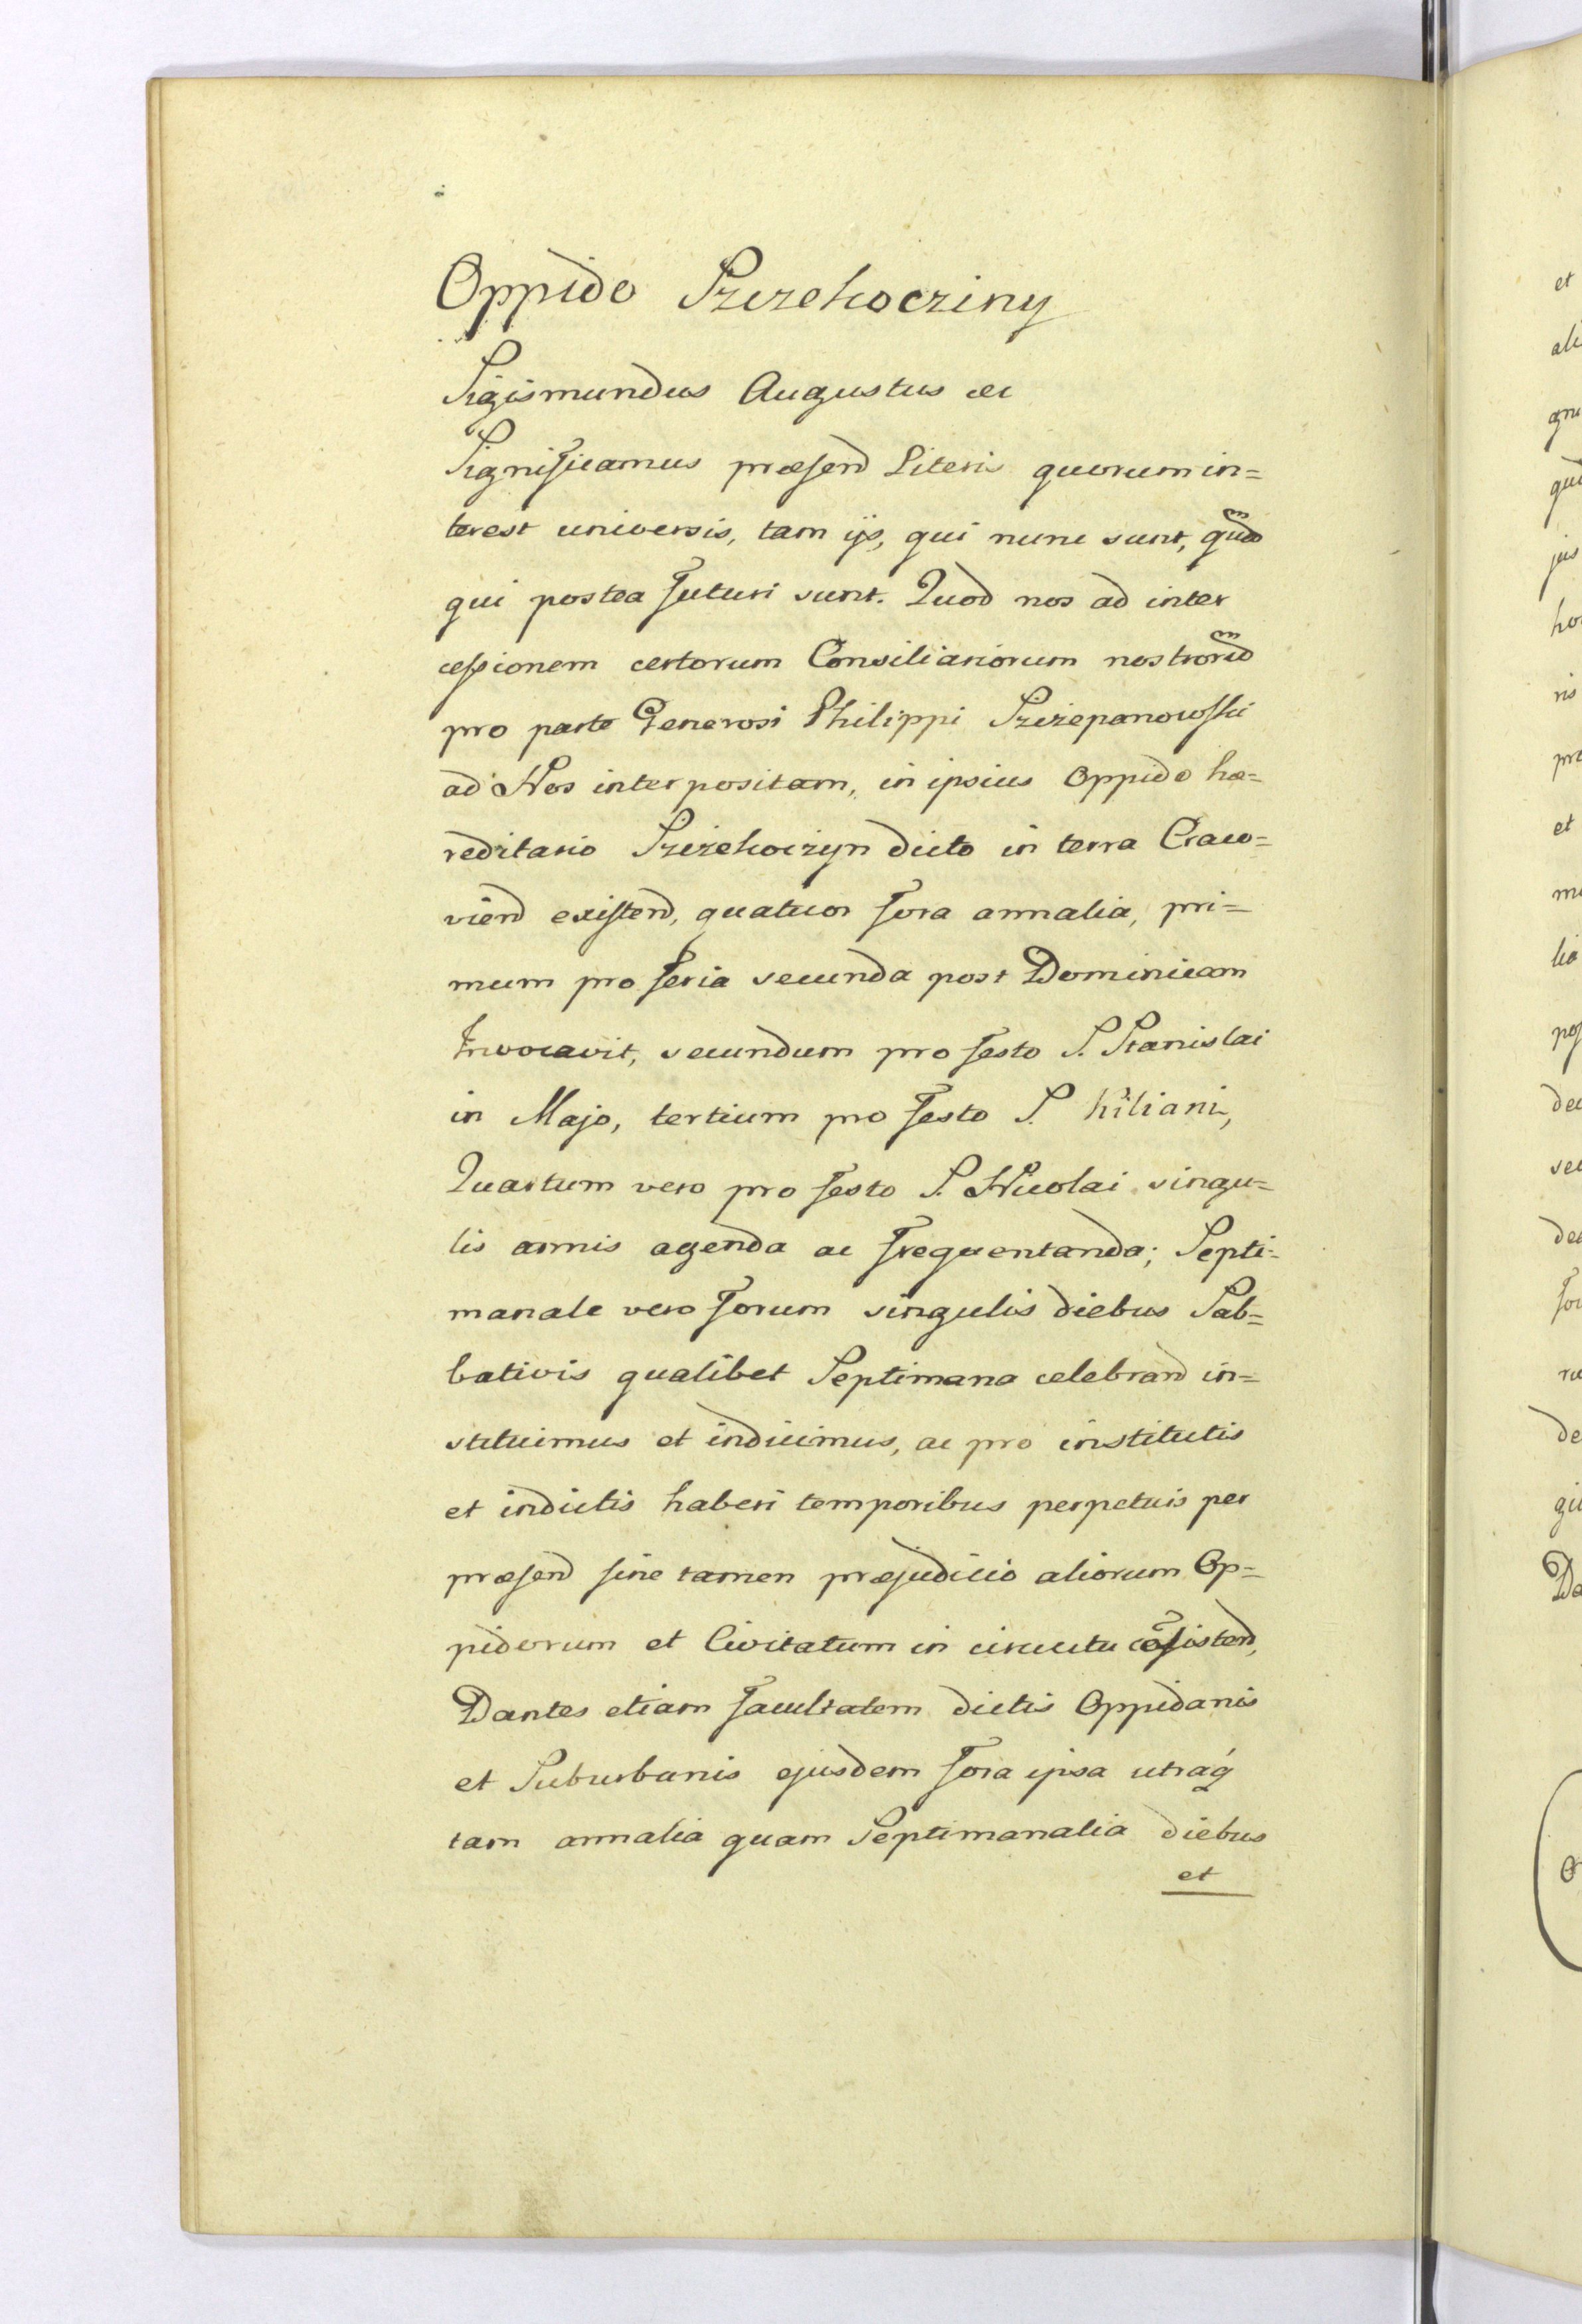 Oppido Szczekocziny
Sigismundus Augustus &c
Significamus præsend Literis quorum in=
terest universis, tam ijs, qui nunc sunt, quã
qui postea futuri sunt. Quod nos ad inter
cessionem certorum Consiliariorum nostrorũ
pro parte Generosi Philippi Szczepanowsski
ad Nos interpositam, in ipsius Oppido hæ=
reditario Szczekoczyn dicto in terra Craco=
viend existend, quatuor fora annalia, pri=
mum pro feria secunda post Dominicam
Invocavit, secundum pro festo S. Stanislai
in Majo, tertium pro festo S. Kiliani,
Quartum vero pro festo S. Nicolai singu=
lis annis agenda ac frequentanda; Septi=
manale vero forum singulis diebus Sab=
bativis qualibet Septimana celebrand in=
stituimus et indicimus, ac pro institutis
et indictis haberi temporibus perpetuis per
præsend sine tamen præjudicio aliorum Op=
pidorum et Civitatum in circuitu cõsistend,
Dantes etiam facultatem dictis Oppidanis
et Suburbanis ejusdem fora ipsa utraq́
tam annalia quam Septimanalia diebus
et